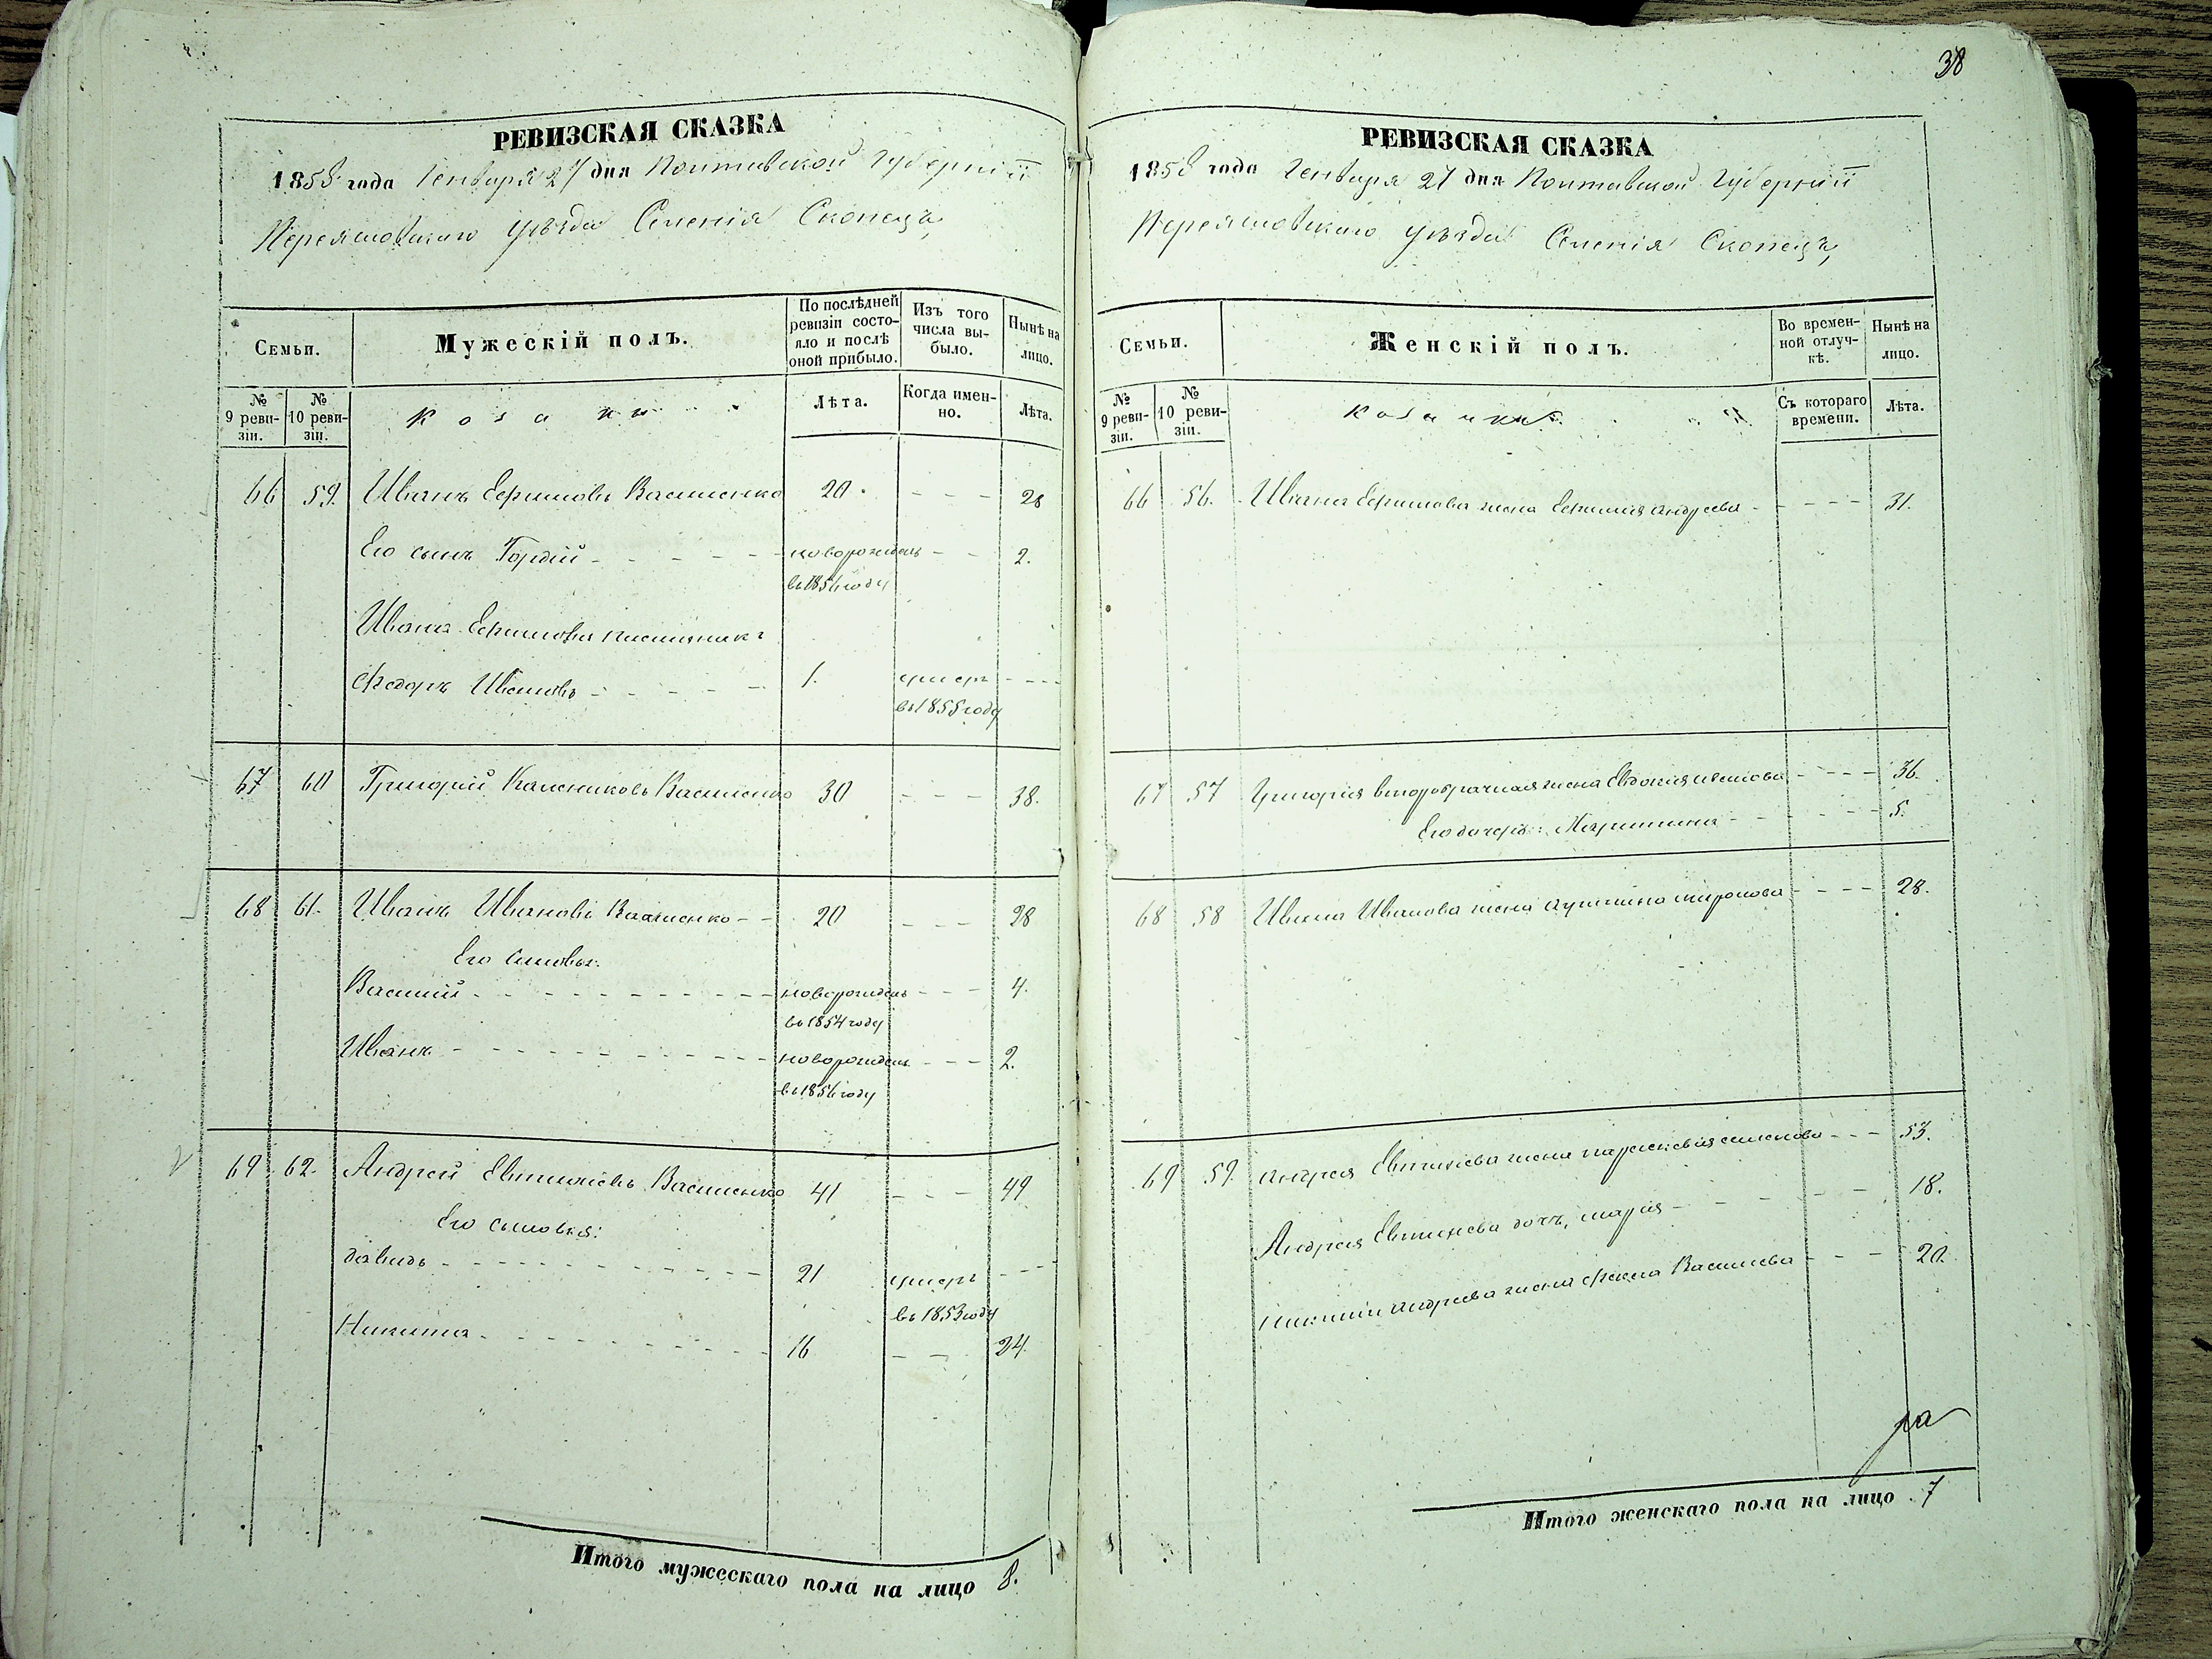 38
РЕВИЗСКАЯ СКАЗКА
1858 года Генваря 27 дня Полтавской Губерніи
Переяславскаго уѣзда Селенія Скопецъ,
Семьи.
Мужескій полъ.
По послѣдней ревизіи состояло и послѣ оной прибыло.
Изъ того числа выбыло.
Нынѣ на лицо.
№ 9 ревизіи.
№ 10 ревизіи.
Козаки
Лѣта.
Когда именно.
Лѣта.
66 59. Иванъ Ефимовъ Василенко 20. - - - 28
Его сынъ Гордій - - - - - новорожденъ - - 2.
въ 1856 году
Ивана Ефимова племянникъ
Федоръ Ивановъ - - - - - 1. умеръ - - - -
въ 1855 году
67 60 Григорій Калениковъ Василенко 30 - - - 38.
68 61. Иванъ Ивановъ Василенко - - 20 - - - 28
Его сыновья:
Василій - - - - - - - - - новорожденъ - - - 4.
въ 1854 году
Иванъ - - - - - - - - - новорожденъ - - - 2.
въ 1856 году
69 62. Андрей Евтихіевъ Василенко 41 - - - 49
Его сыновья:
Давидъ - - - - - - - - - 21 умеръ - - -
въ 1853 году
Никита - - - - - - - - 16 - - 24.
Итого мужескаго пола на лицо 8.
РЕВИЗСКАЯ СКАЗКА
1858 года Генваря 27 дня Полтавской Губерніи
Переяславскаго уѣзда Селенія Скопецъ,
Семьи.
Женскій полъ.
Во временной отлучкѣ.
Нынѣ на лицо.
№ 9 ревизіи.
№ 10 ревизіи.
Съ котораго времени.
Лѣта.
66 56. Ивана Ефимова жена Ефимія Андреева - - - - - 31.
67 57 Григорія второбрачная жена Евдокія - - - - 36.
Его дочерь: - - - - - - 5.
68 58 Ивана Ивановa жена Миронова - - - - 28.
69 59. Андрея Евтихіева жена Параскевія - - - 53.
Андрея Евтихіева дочь, Марія - - - - - 18.
Никиты Андреева жена Фекла Василіева - - - 20.
Итого женскаго пола на лицо 7